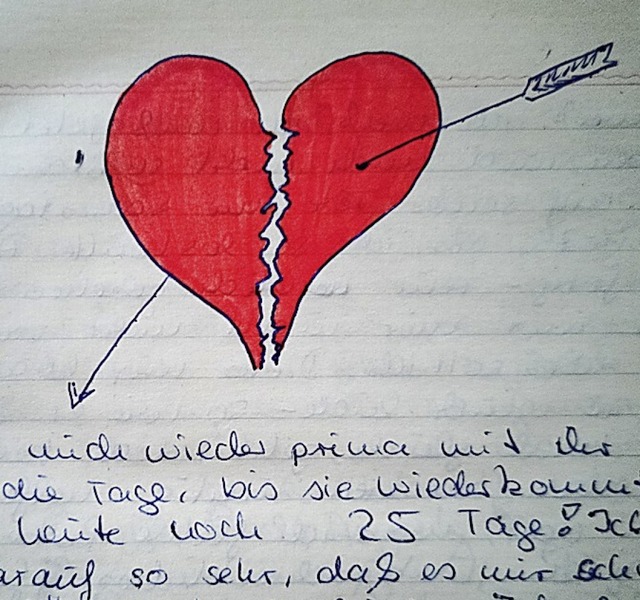 mich wieder prima mit ihr
die Tage, bis sie wiederkomm-
heute noch 25 Tage! Ich
arauf so sehr, daß es mir sch